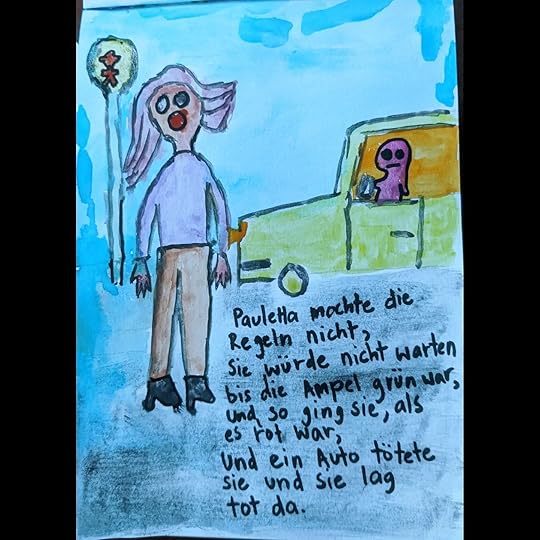 Pauletta mochte die
Regeln nicht,
Sie würde nicht warten
bis die Ampel grün war,
und so ging sie, als
es rot war,
Und ein Auto tötete
sie und sie lag
tot da.